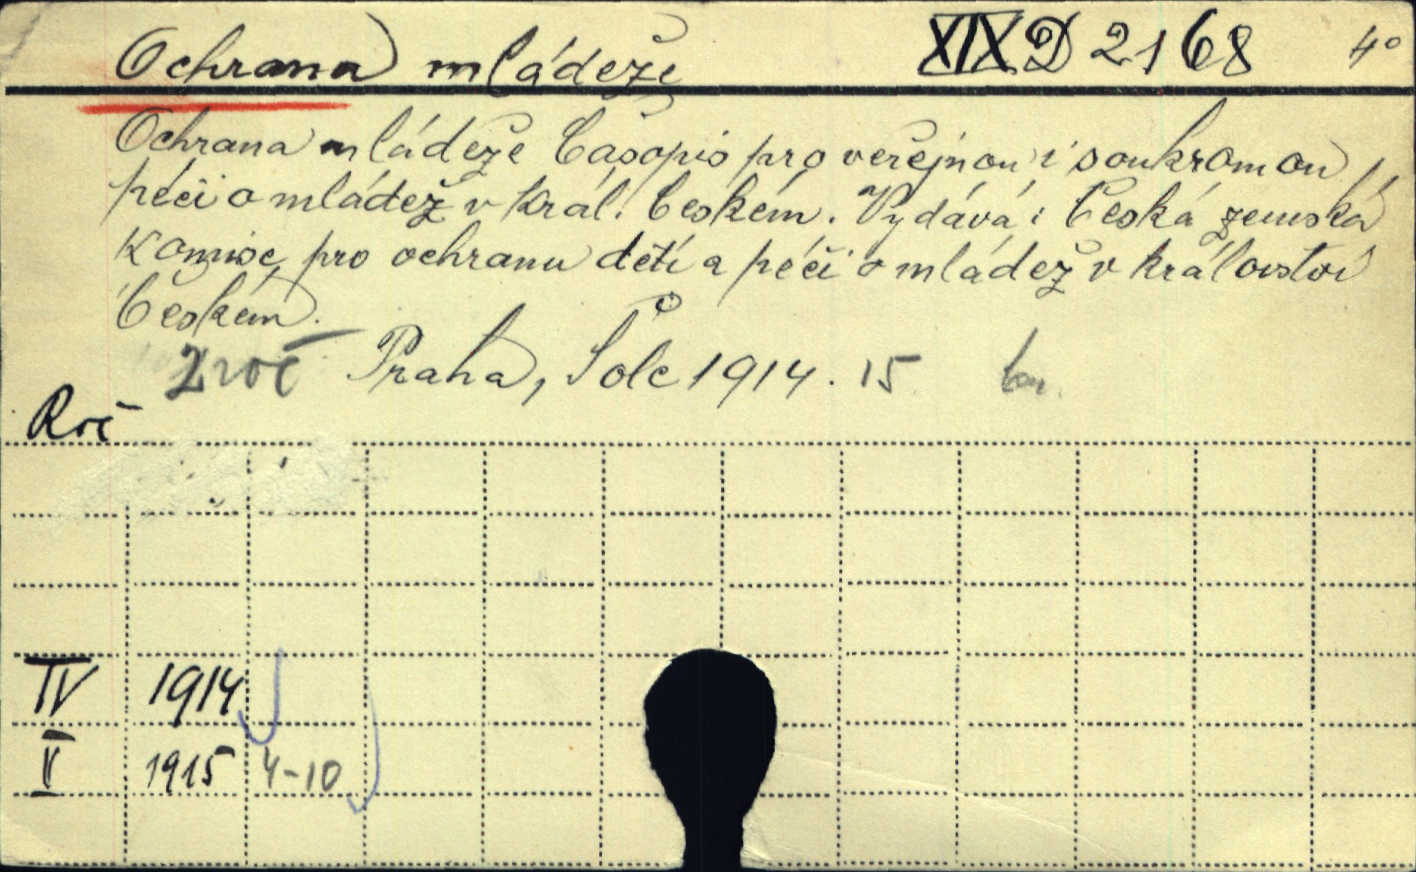 Ochrana mládeže XIX D 2168 4°
Ochrana mládeže Časopis pro veřejnou i soukromou
péči o mládež v Král. Českém. Vydává: Česká zemská
Komise pro ochranu dětí a péči o mládež v království
Českém.
2 roč Praha, Šolc 1914. 15
Roč
IV 1914
V 1915 4-10